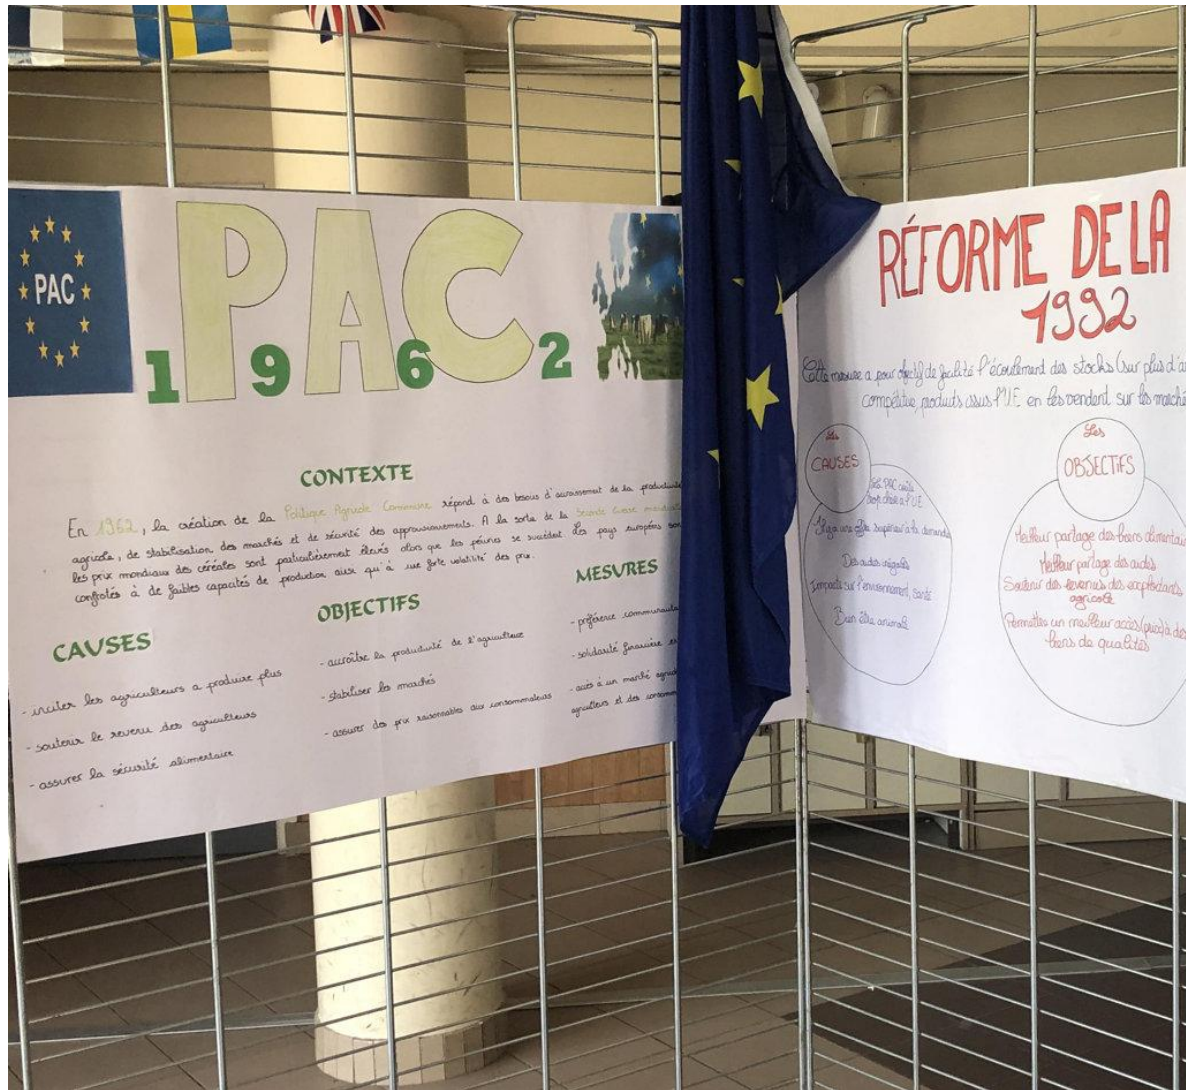 PAC
PAC
1962
CONTEXTE
En 1962, la création de la Politique Agricole Commune répond à des besoins d'accroissement de la productivité
agricole, de stabilisation des marchés et de sécurité des approvisionnements. A la sortie de la Seconde Guerre mondiale
les prix mondiaux des céréales sont particulièrement élevés alors que les pénuries se succèdent. Les pays européens sont
confrotés à de faibles capacités de production ainsi qu'à une forte volatilité des prix.
CAUSES
- inciter les agriculteurs a produire plus
- soutenir le revenu des agriculteurs
- assurer la sécurité alimentaire
OBJECTIFS
- accroître la productivité de l'agriculteur
- stabiliser les marchés
- assurer des prix raisonnables aux consommateurs
MESURES
- préférence communauta
- solidarité financière
- accès à un marché agrico
agriculteurs et des consomm
RÉFORME DE LA
1992
Cette mesure a pour objectif de facilité l'écoulement des stocks (sur plus d'a
compétitive, produits issus l'UE en les vendent sur les marché
Les
CAUSES
La PAC coûte
trop chère a l'UE
Il y a une offre supérieur à la demande
Des aides inégales
Impacts sur l'environnement, santé
Bien être animale
Les
OBJECTIFS
Meilleur partage des biens alimentair
Meilleur partage des aides
Soutenir des revenus des exploitants
agricole
Permettre un meilleur accès (prix) à des
biens de qualités